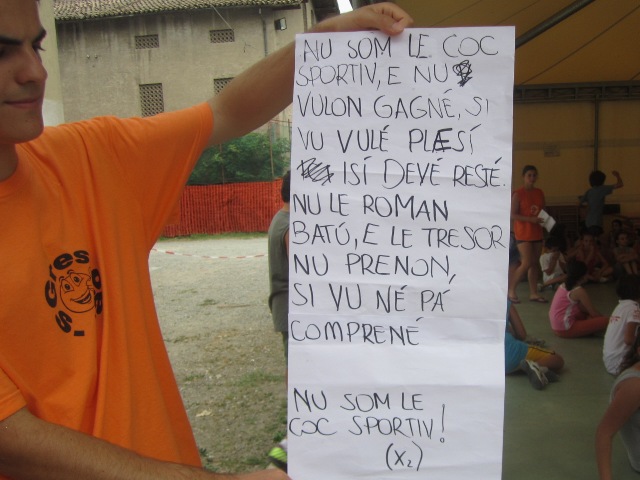 NU SOM LE COC
SPORTIV, E NU
VULON GAGNÉ, SI
VU VULÉ PLESÍ
ISÍ DEVÉ RESTÉ.
NU LE ROMAN
BATÚ, E LE TRESOR
NU PRENON,
SI VU NÉ PÁ
COMPRENÉ
NU SOM LE
COC SPORTIV!
(X2)